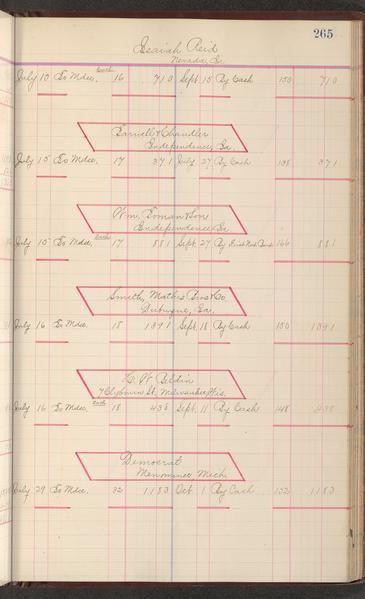 265
Isaiah Reid
Nevada, Ia.
July 10 To Mdse. 16 710 Sept. 15 By Cash 150 710
Farwell & Chandler
Independence, Ia.
July 15 To Mdse. 17 371 July 27 By Cash 138 371
Wm. Toman & Son
Independence, Ia.
July 15 To Mdse. 17 881 Sept. 27 By 166 881
Smith, Mathis Bros & Co.
Dubuque, Ia.
July 16 To Mdse. 18 1091 Sept. 18 By Cash 150 1091
St. Milwaukee, Wis.
July 16 To Mdse. 18 438 Sept. 11 By Cash 148 438
Democrat
Menominee, Mich.
July 29 To Mdse. 32 1183 Oct. 1 By Cash 152 1183